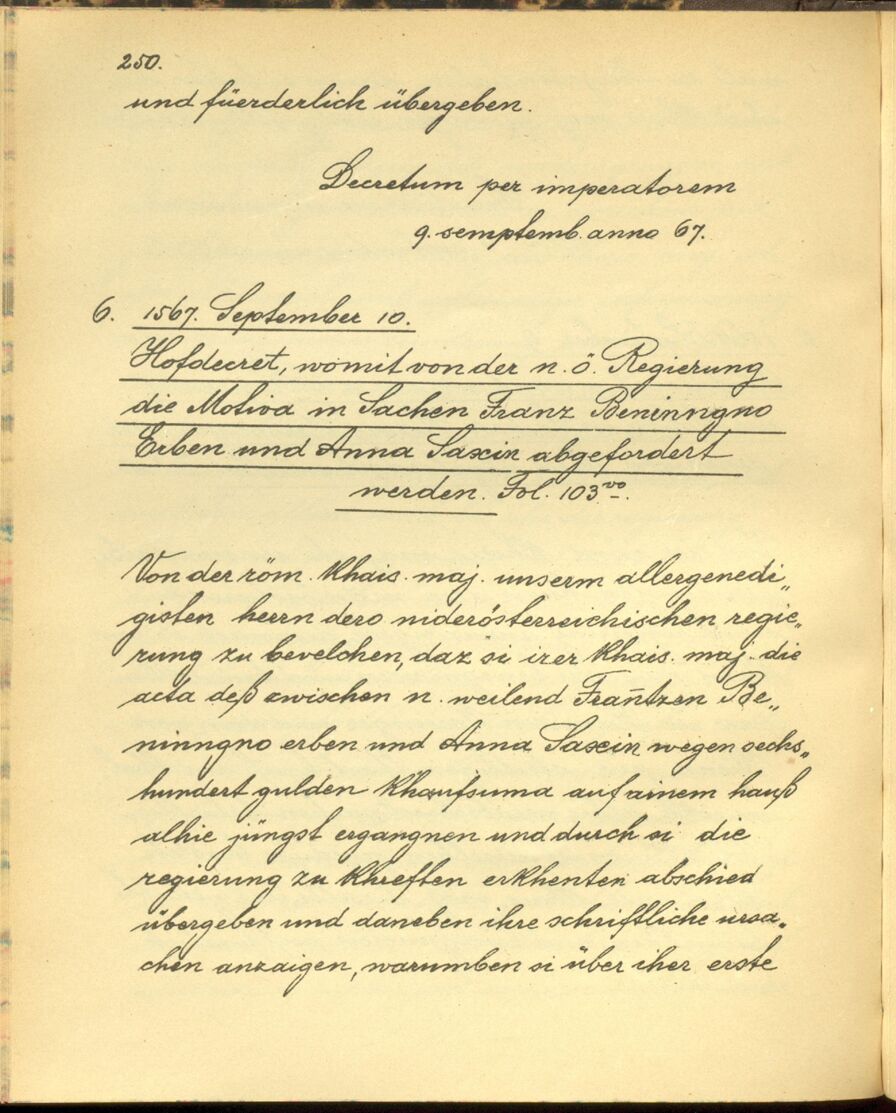 250.
und füerderlich übergeben.
Decretum per imperatorem
9. semptemb. anno 67.
6. 1567. September 10.
Hofdecret, womit von der n. ö. Regierung
die Motiva in Sachen Franz Beninngno
Erben und Anna Saxin abgefordert
werden. Fol. 103vo.
Von der röm. Khais. maj. unserm allergenedi„
gisten herrn dero niderösterreichischen regie„
rung zu bevelchen, daz si irer Khais. maj. die
acta deß zwischen n. weilend Frañtzen Be„
ninngno erben und Anna Saxin wegen sechs„
hundert gulden Khaufsuma auf ainem hauß
alhie jüngst ergangnen und durch si die
regierung zu Khrefften erkhenten abschied
übergeben und daneben ihre schrifftliche ursa„
chen anzaigen, warumben si über iher erste